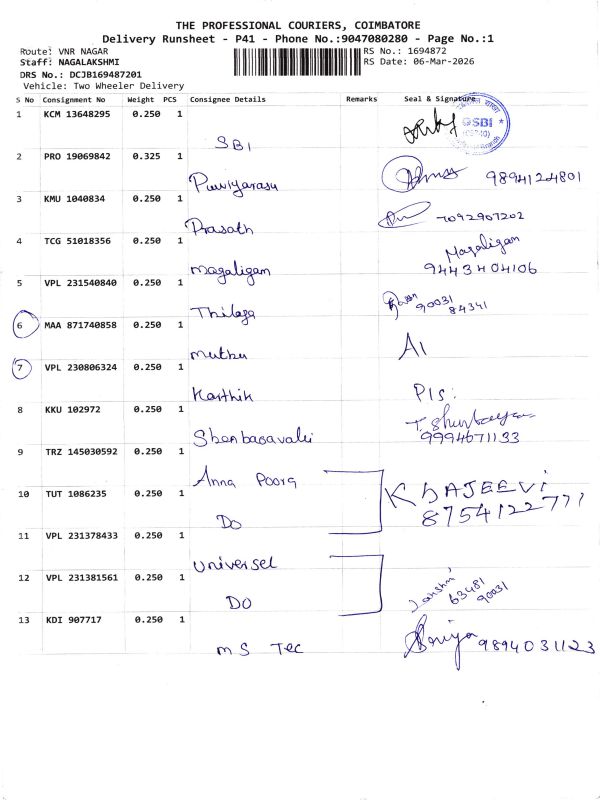 THE PROFESSIONAL COURIERS, COIMBATORE
Delivery Runsheet - P41 - Phone No.:9047080280 - Page No.:1
Route: VNR NAGAR
RS No.: 1694872
Staff: NAGALAKSHMI
RS Date: 06-Mar-2026
DRS No.: DCJB169487201
Vehicle: Two Wheeler Delivery
S No Consignment No Weight PCS Consignee Details Remarks Seal & Signature
1 KCM 13648295 0.250 1
SBI
SBI
2 PRO 19069842 0.325 1
Puviyarasu 9894124801
3 KMU 1040834 0.250 1
Prasath 7092907202
4 TCG 51018356 0.250 1
Magaligam
magaligam 9443404106
5 VPL 231540840 0.250 1
Thilaga 90031
84341
6 MAA 871740858 0.250 1
muthu A1
7 VPL 230806324 0.250 1
Karthik P1s:
8 KKU 102972 0.250 1
Shenbagavalli 9994671133
9 TRZ 145030592 0.250 1
Anna Poorg
10 TUT 1086235 0.250 1
Do 8754122777
11 VPL 231378433 0.250 1
Universel
12 VPL 231381561 0.250 1
Do Lakshmi 63481
90031
13 KDI 907717 0.250 1
ms Tec 9894031123